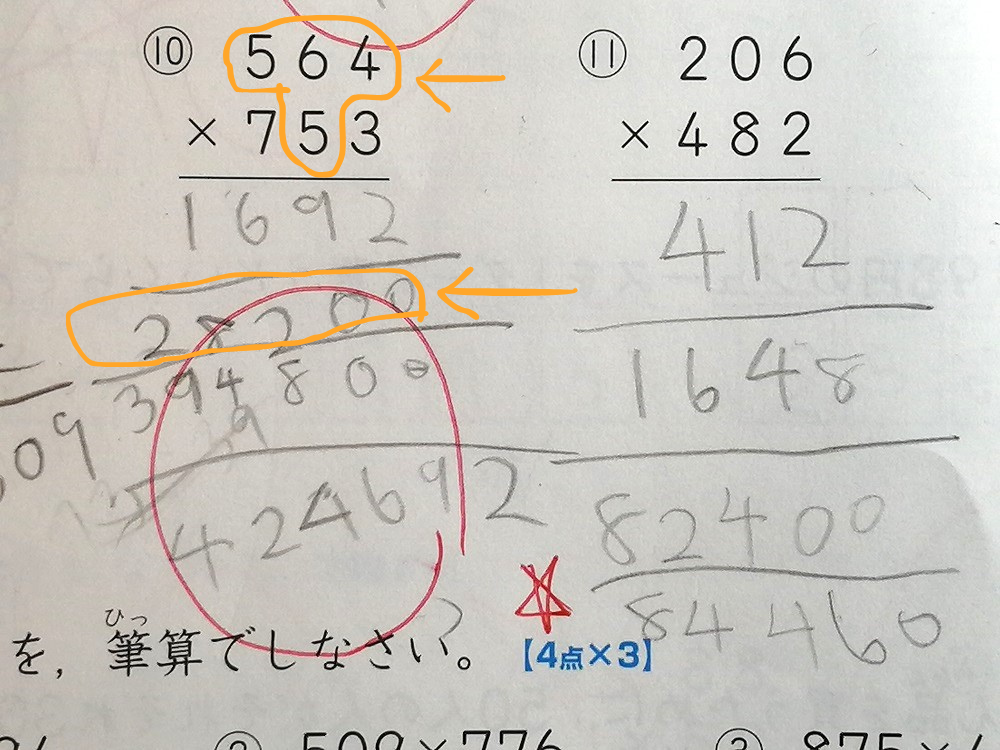 ⑩ 564
× 753
1692
28200
394800
424692
⑪ 206
× 482
412
1648
82400
84460
09
9
ひっ
を，筆算でしなさい。 【4点×3】
509×776
875×